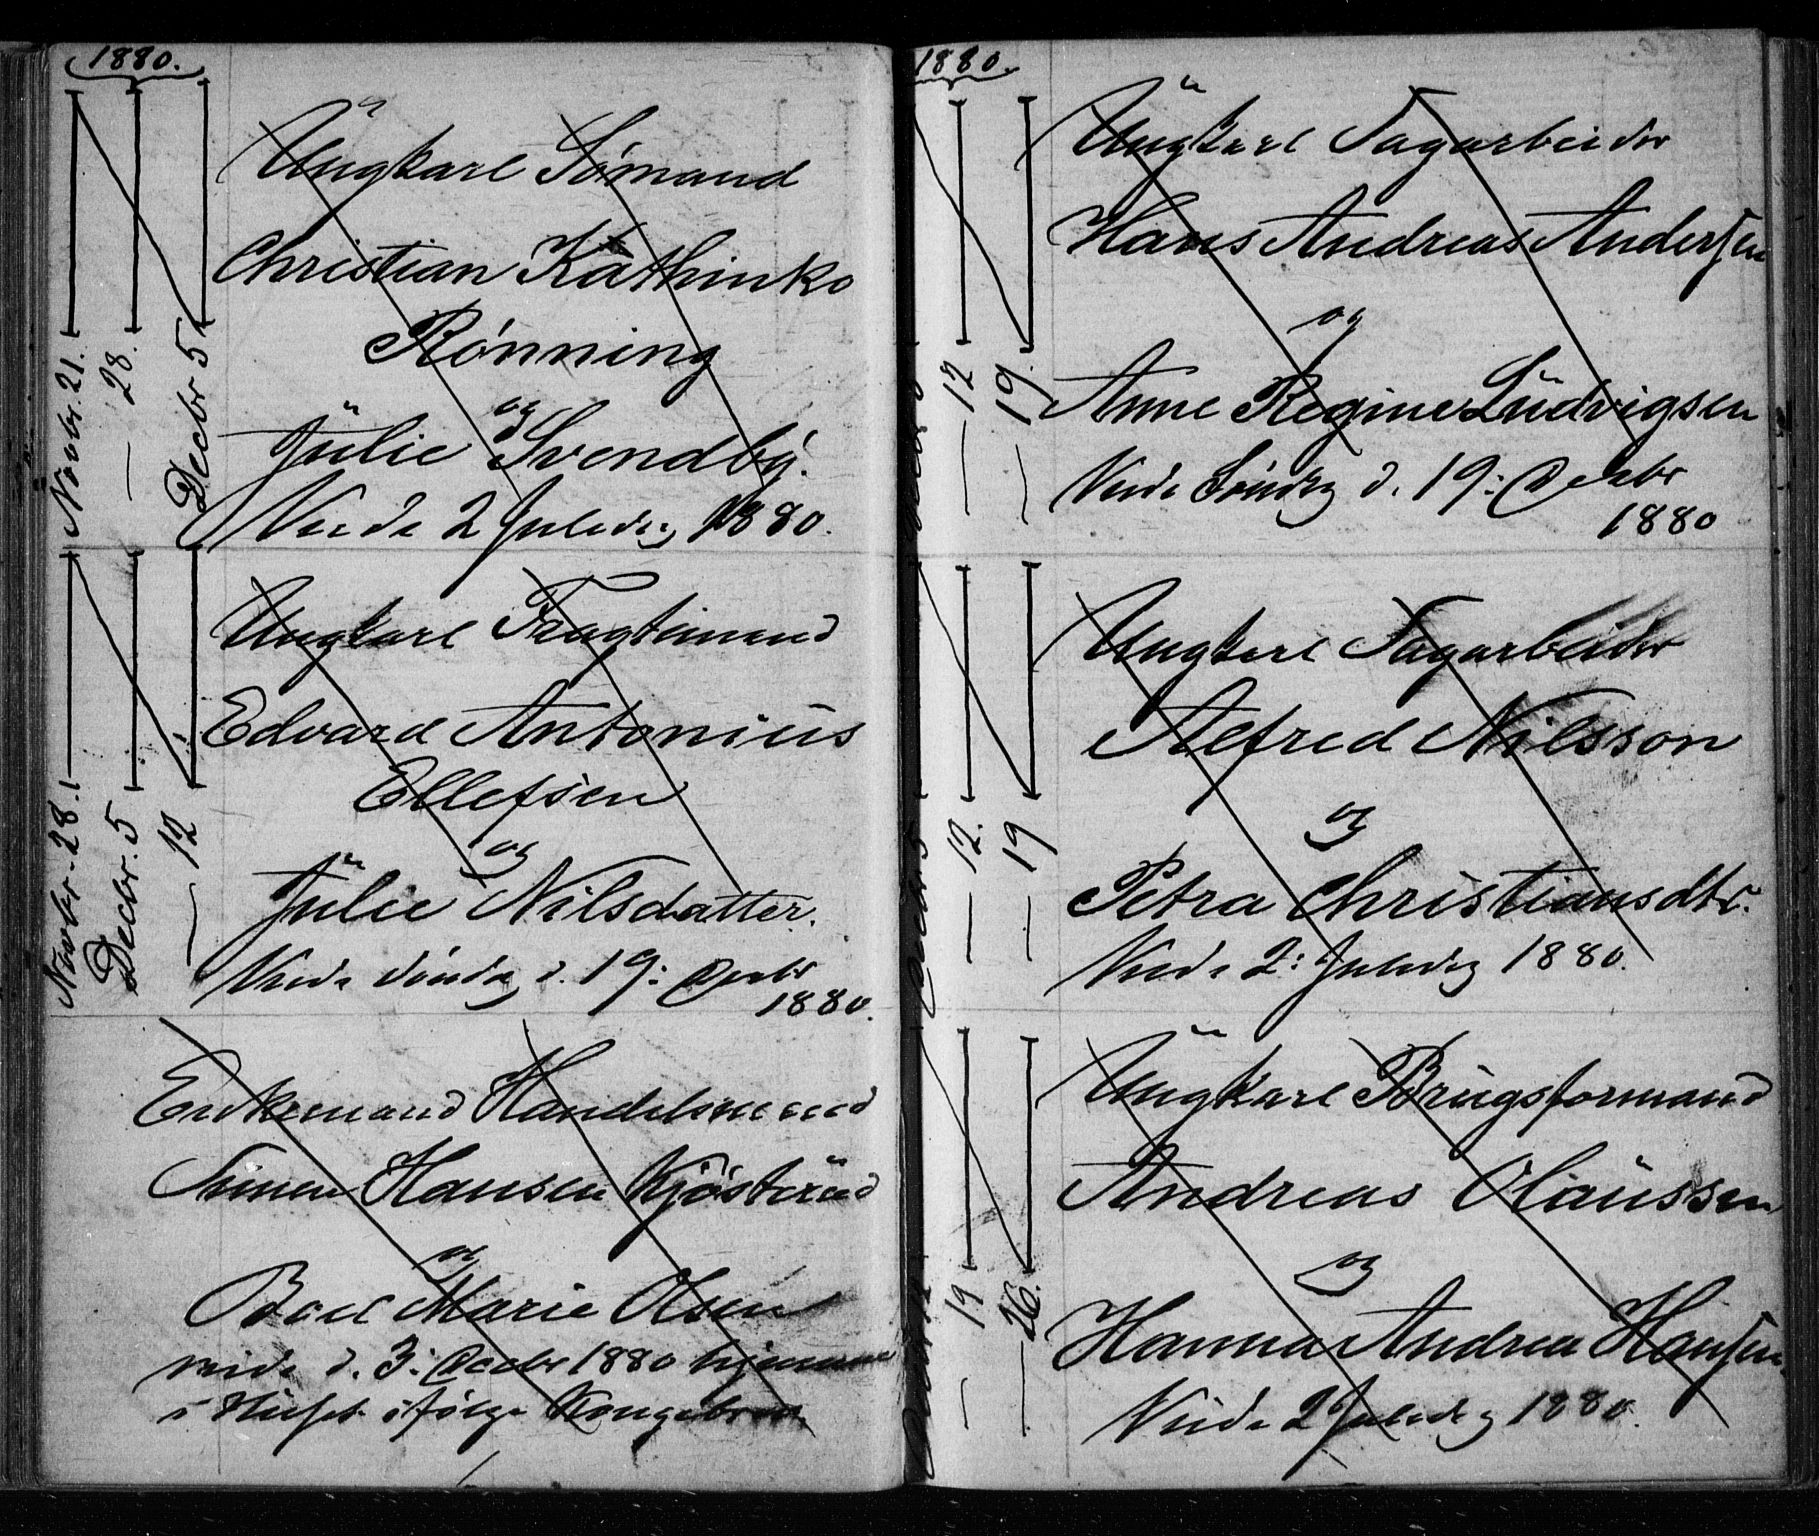 1880.
Novbr. 21.
— 28.
Decbr 5
Ungkarl Sømand
Christian Kathinko
Rønning
og
Julie Svendby.
Viede 2 Juledag 1880.
Novbr. 28.
Decbr. 5
— 12
Ungkarl Fragtemand
Edvard Antonius
Ellefsen
og
Julie Nilsdatter.
Viede Søndag d. 19: Decbr
1880.
Enkemand Handelsmand
Simen Hansen Kjøsterud
og
Boel Marie Olsen
viede d. 3: Decbr 1880 hjemme
i Huset ifølge Kongebrev.
1880.
— 12
— 19.
Ungkarl Sagarbeider
Hans Andreas Andersen
og
Anne Regine Ludvigsen
Viede Søndag d. 19: Decbr
1880
Decbr. 5
— 12.
— 19
Ungkarl Sagarbeider
Alfred Nilsson
og
Petra Christiansdtr.
Viede 2: Juledag 1880.
— 19
— 26.
Ungkarl Brugsformand
Andreas Olaussen
og
Hanna Andrea Hansen
Viede 2 Juledag 1880.